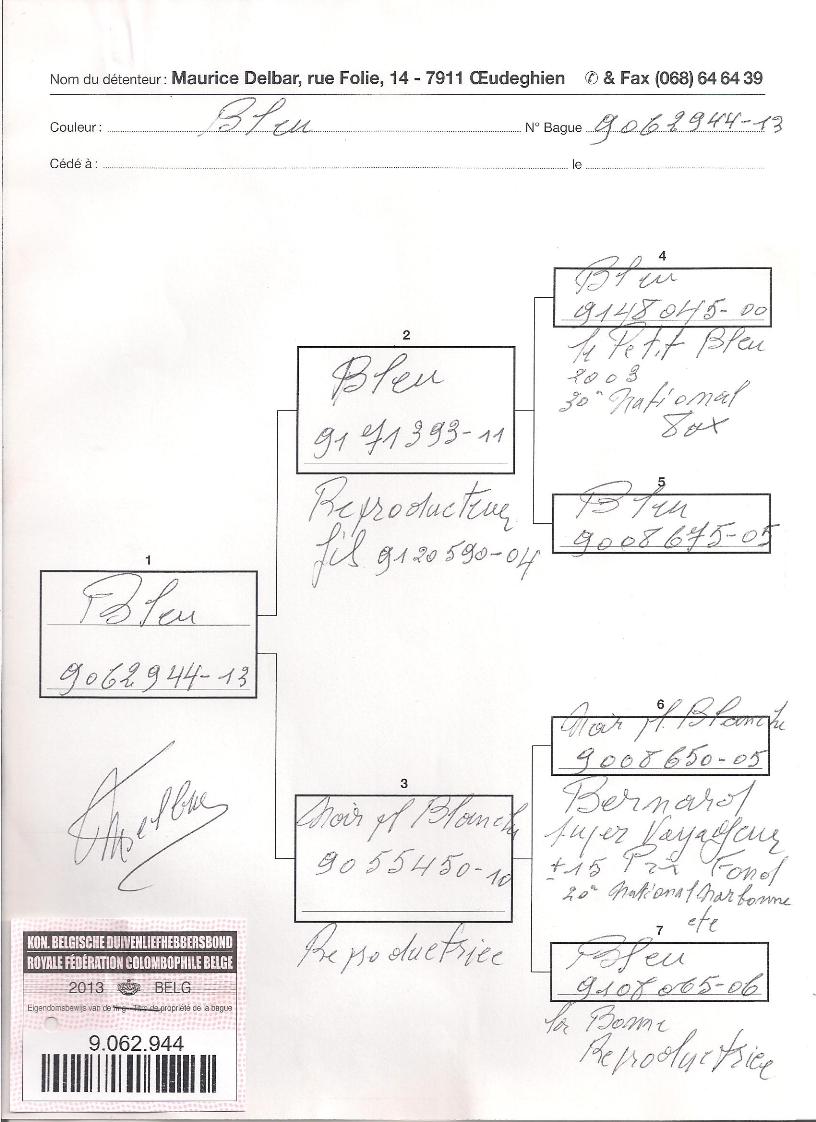 Nom du détenteur : Maurice Delbar, rue Folie, 14 - 7911 Œudeghien ✆ & Fax (068) 64 64 39
Couleur : Bleu N° Bague 9062944-13
Cédé à : le
4
Bleu
9148045-00
le Petit Bleu
2003
30e National
2
Bleu
9171393-11
Reproducteur
fils 9120590-04
5
Bleu
9008675-05
1
Bleu
9062944-13
6
Noir pl Blanche
9008650-05
Bernard
super Voyageur
±15 Prix Fond
20e National Narbonne
etc
3
Noir pl Blanche
9055450-10
Reproductrice
7
Bleu
9108065-06
la Bonne
Reproductrice
KON. BELGISCHE DUIVENLIEFHEBBERSBOND
ROYALE FÉDÉRATION COLOMBOPHILE BELGE
2013 BELG
Eigendomsbewijs van de ring - Titre de propriété de la bague
9.062.944